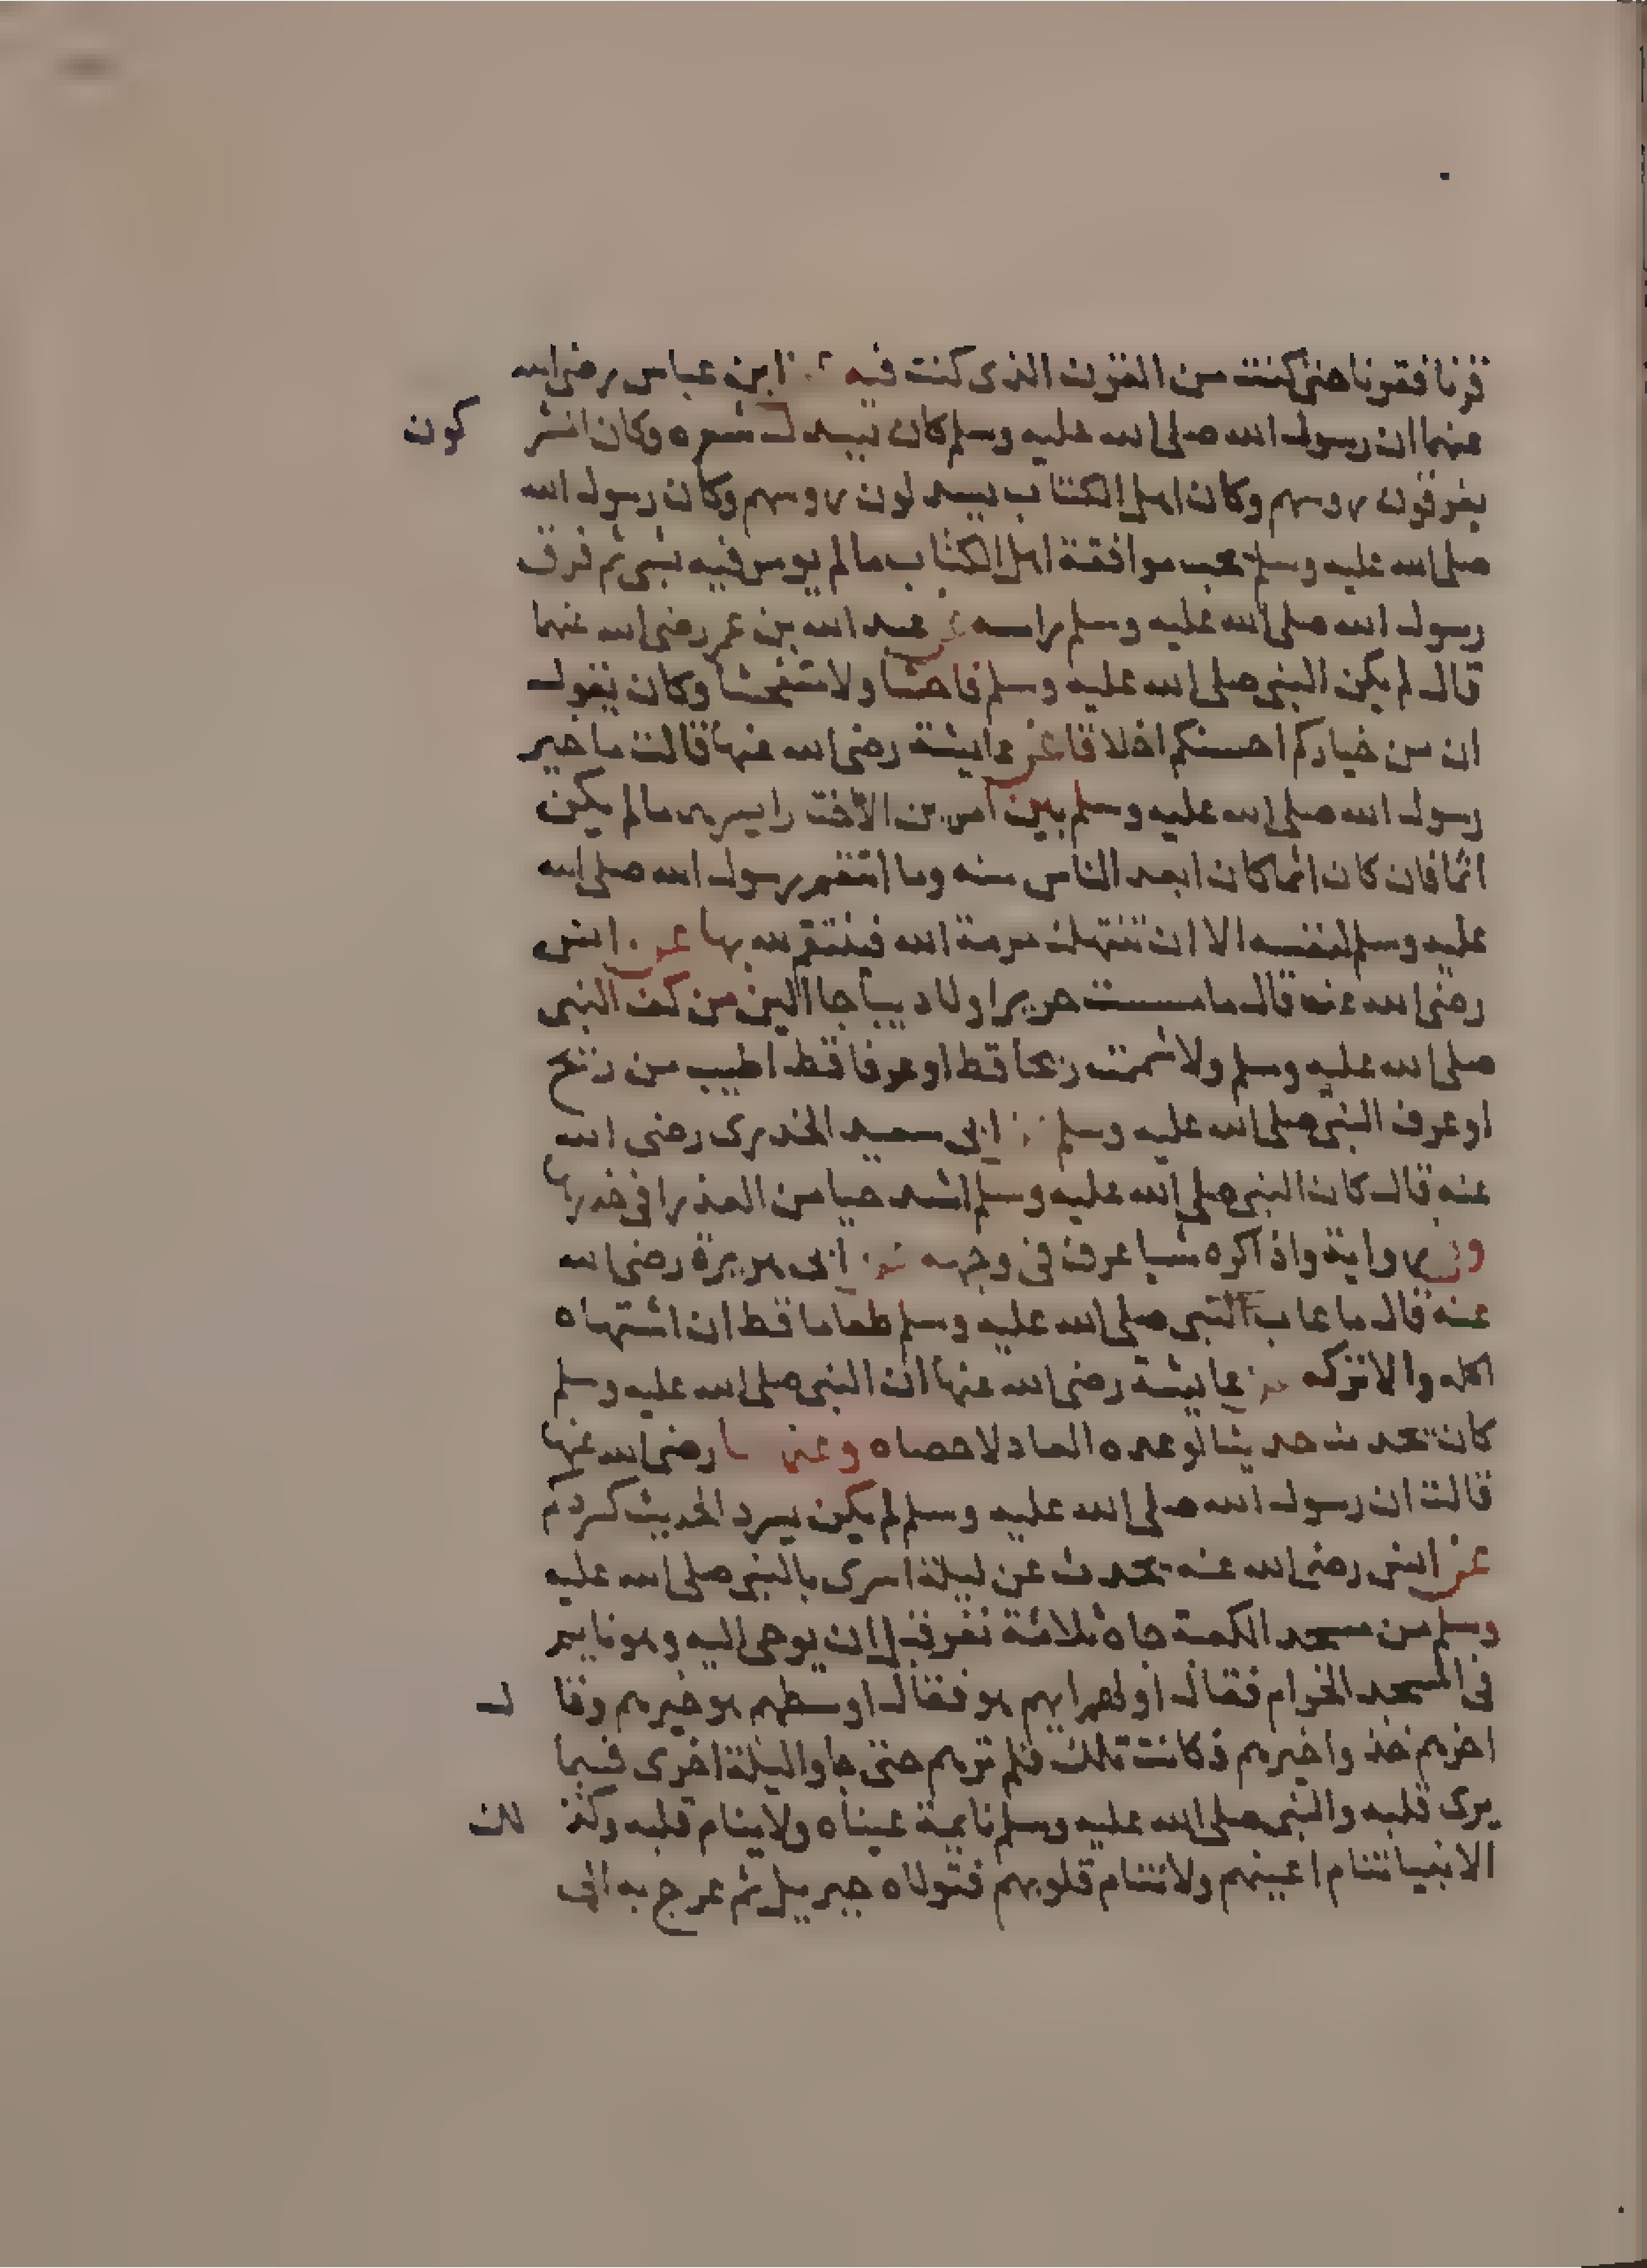 قرنا فقرنا حتى كنت من القرن الذى كنت فيه عن ابن عباس رضى الله
عنهما ان رسول الله صلى الله عليه وسلم كان يسدل شعره وكان المشر كون
يفرقون روسهم وكان اهل الكتاب يسدلون روسهم وكان رسول الله
صلى الله عليه وسلم يحب موافقة اهل الكتاب ما لم يومر فيه بشى ثم فرق
رسول الله صلى الله عليه وسلم راسه عن عبد الله بن عمر رضى الله عنهما
قال لم يكن النبى صلى الله عليه وسلم فاحشا ولا متفحشا وكان يقول
ان من خياركم احسنكم اخلاقا عن عايشة رضى الله عنها قالت ما خير
رسول الله صلى الله عليه وسلم بين امرين الا اختار ايسرهما ما لم يكن
اثما فان كان اثما كان ابعد الناس منه وما انتقم رسول الله صلى الله
عليه وسلم لنفسه الا ان تنتهك حرمة الله فينتقم لله بها عن انس
رضى الله عنه قال ما مسست حريرا ولا ديباجا الين من كف النبى
صلى الله عليه وسلم ولا شممت ريحا قط او عرفا قط اطيب من ريح
او عرف النبى صلى الله عليه وسلم عن ابى سعيد الخدرى رضى الله
عنه قال كان النبى صلى الله عليه وسلم اشد حيا من العذرا فى خدرها
وفى رواية واذا كره شيا عرف فى وجهه عن ابى هريرة رضى الله
عنه قال ما عاب النبى صلى الله عليه وسلم طعاما قط ان اشتهاه
اكله والا تركه عن عايشة رضى الله عنها ان النبى صلى الله عليه وسلم
كان يحدث حديثا لو عده العاد لاحصاه وعنها رضى الله عنها
قالت ان رسول الله صلى الله عليه وسلم لم يكن يسرد الحديث كسردكم
عن انس رضى الله عنه يحدث عن ليلة اسرى بالنبى صلى الله عليه
وسلم من مسجد الكعبة جاه ثلاثة نفر قبل ان يوحى اليه وهو نايم
فى المسجد الحرام فقال اولهم ايهم هو فقال اوسطهم هو خيرهم وقا ل
اخرهم خذوا خيرهم فكانت تلك فلم يرهم حتى جاوا ليلة اخرى فيما
يرى قلبه والنبى صلى الله عليه وسلم نايمة عيناه ولا ينام قلبه وكذ لك
الانبيا تنام اعينهم ولا تنام قلوبهم فتولاه جبريل ثم عرج به الى